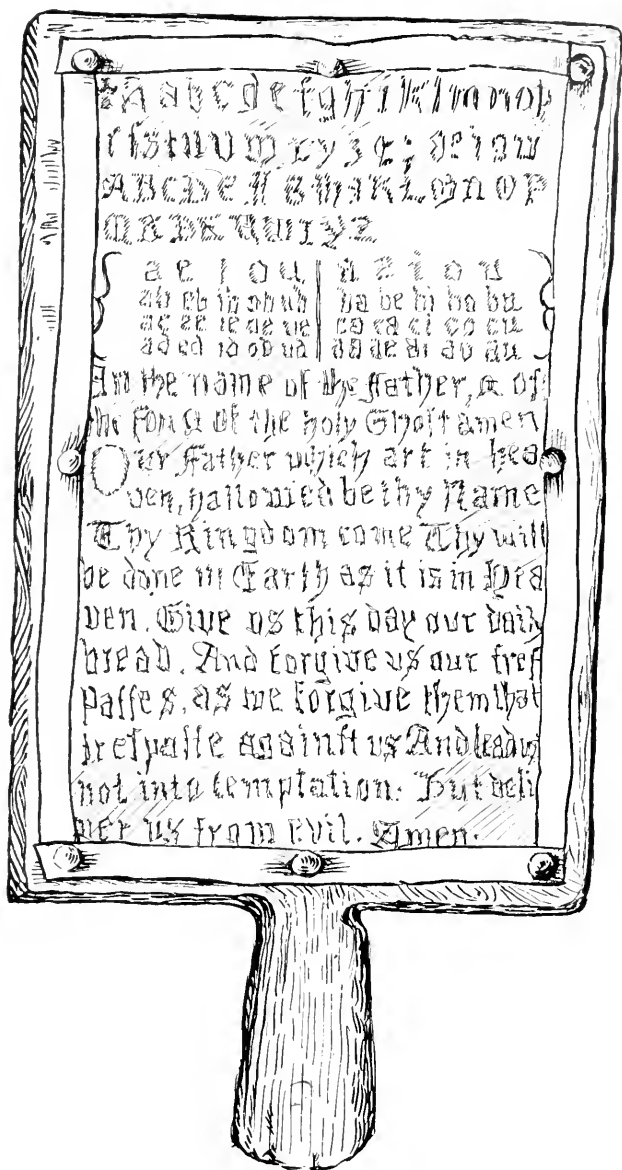 A a b c d e f g h i k l m n o p
r ſ s t u v w x y z &; a e i o u
A B C D E F G H I K L M N O P
Q R S T U W X Y Z
a e i o u a e i o u
ab eb ib ob ub ba be bi bo bu
ac ec ic oc uc ca ce ci co cu
ad ed id od ud da de di do du
In the name of the Father, & of
the Son & of the Holy Ghoſt amen
Our Father which art in hea
ven, hallowed be thy Name
Thy Kingdom come Thy will
be done in Earth as it is in Hea
ven. Give us this day our daily
bread. And forgive us our treſ
paſſes, as we forgive them that
treſpaſſe againſt us And lead us
not into temptation: But deli
ver us from evil. Amen.